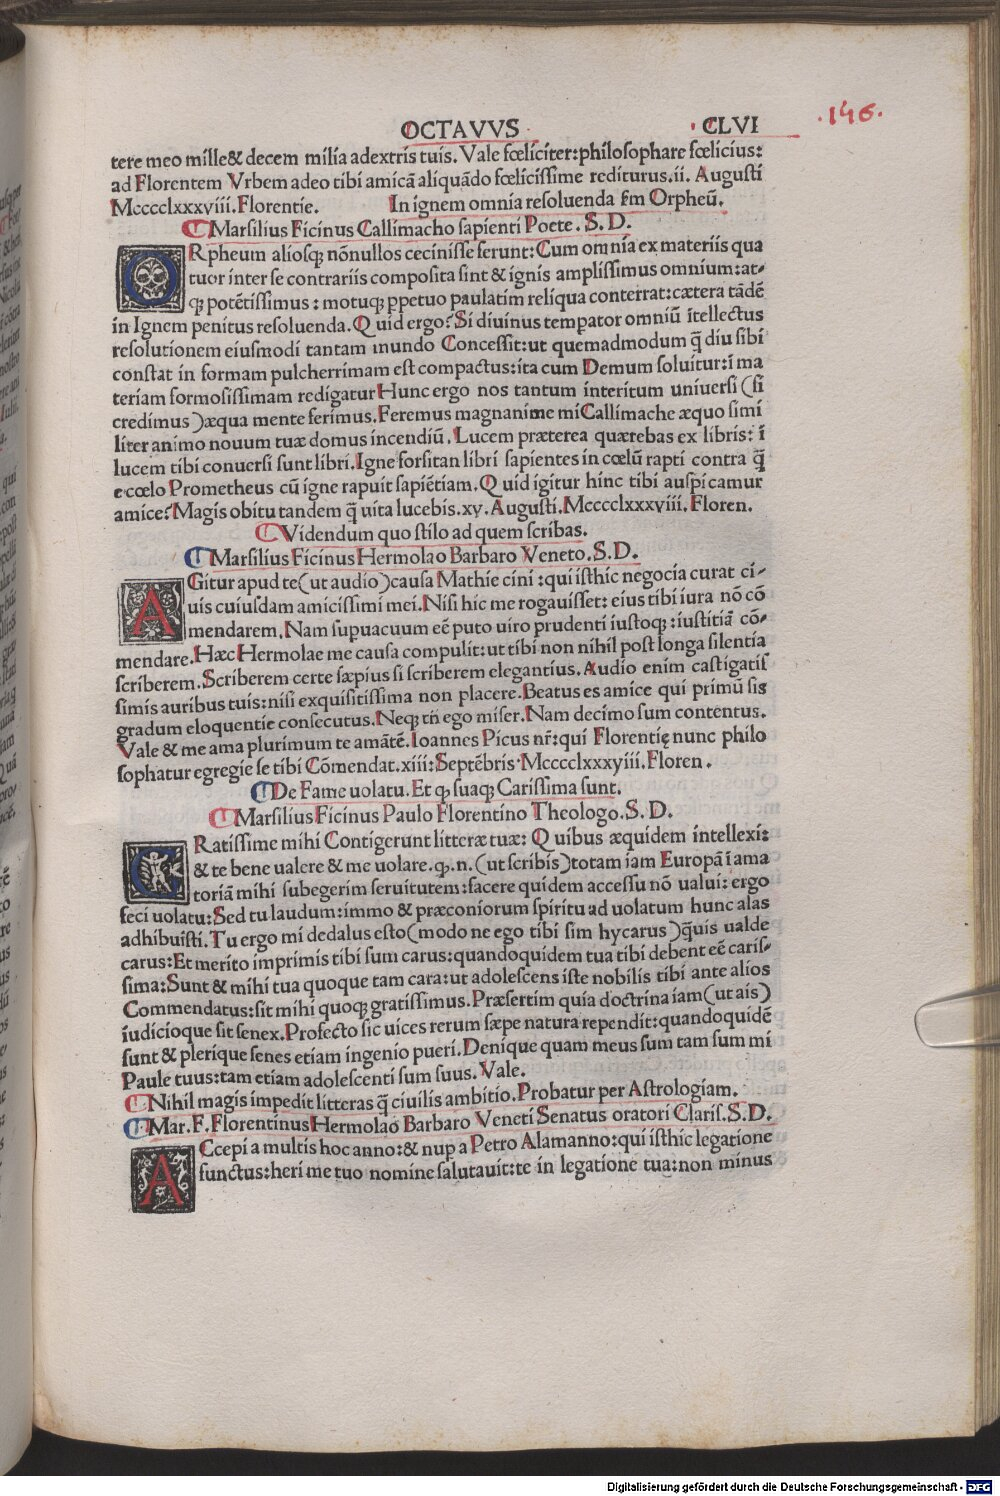 OCTAVVS CLVI
.146.
tere meo mille& decem milia adextris tuis. Vale fœliciter:philosophare fœlicius:
ad Florentem Vrbem adeo tibi amicā aliquādo fœlicissime rediturus.ii. Augusti
Mcccclxxxviii.Florentie. In ignem omnia resoluenda fm Orpheū.
Marsilius Ficinus Callimacho sapienti Poete. S. D.
ORpheum aliosqȝ nōnullos cecinisse ferunt: Cum omnia ex materiis qua
tuor inter se contrariis composita sint & ignis amplissimus omnium:at-
qȝ potētissimus: motuqȝ ꝑpetuo paulatim reliqua conterrat:cætera tādē
in Ignem penitus resoluenda. Quid ergo? Si diuinus tempator omniū ītellectus
resolutionem eiusmodi tantam mundo Concessit:ut quemadmodum q̄ diu sibi
constat in formam pulcherrimam est compactus:ita cum Demum soluitur:ī ma
teriam formosissimam redigatur Hunc ergo nos tantum interitum uniuersi (si
credimus) æqua mente ferimus.Feremus magnanime mi Callimache æquo simi
liter animo nouum tuæ domus incendiū. Lucem præterea quærebas ex libris: ī
lucem tibi conuersi sunt libri.Igne forsitan libri sapientes in cœlū rapti contra q̄
e cœlo Prometheus cū igne rapuit sapiētiam. Quid igitur hinc tibi auspicamur
amice? Magis obitu tandem q̄ uita lucebis.xv. Augusti.Mcccclxxxviii. Floren.
Videndum quo stilo ad quem scribas.
Marsilius Ficinus Hermolao Barbaro Veneto. S. D.
AGitur apud te (ut audio) causa Mathie cini: qui isthic negocia curat ci-
uis cuiusdam amicissimi mei. Nisi hic me rogauisset: eius tibi iura nō cō
mendarem. Nam supuacuum eē puto uiro prudenti iustoqȝ: iustitiā cō-
mendare. Hæc Hermolae me causa compulit:ut tibi non nihil post longa silentia
scriberem. Scriberem certe sæpius si scriberem elegantius. Audio enim castigatis
simis auribus tuis:nisi exquisitissima non placere.Beatus es amice qui primū sis
gradum eloquentie consecutus. Neqȝ tn̄ ego miser. Nam decimo sum contentus.
Vale & me ama plurimum te amātē. Ioannes Picus nr̄: qui Florentię nunc philo
sophatur egregie se tibi Cōmendat.xiii: Septēbris Mcccclxxxyiii. Floren.
De Fame uolatu. Et qȝ suaqȝ Carissima sunt.
Marsilius Ficinus Paulo Florentino Theologo. S. D.
GRatissime mihi Contigerunt litteræ tuæ: Quibus æquidem intellexi:
& te bene ualere & me uolare.qȝ.n.(ut scribis) totam iam Europā ī ama
toriā mihi subegerim seruitutem: facere quidem accessu nō ualui: ergo
feci uolatu: Sed tu laudum:immo & præconiorum spiritu ad uolatum hunc alas
adhibuisti. Tu ergo mi dedalus esto (modo ne ego tibi sim hycarus) q̄uis ualde
carus: Et merito imprimis tibi sum carus: quandoquidem tua tibi debent eē caris-
sima: Sunt & mihi tua quoque tam cara: ut adolescens iste nobilis tibi ante alios
Commendatus: sit mihi quoqȝ gratissimus. Præsertim quia doctrina iam (ut ais)
iudicioque sit senex. Profecto sic uices rerum sæpe natura rependit: quandoquidē
sunt & plerique senes etiam ingenio pueri. Denique quam meus sum tam sum mi
Paule tuus: tam etiam adolescenti sum suus. Vale.
Nihil magis impedit litteras q̄ ciuilis ambitio. Probatur per Astrologiam.
Mar. F. Florentinus Hermolao Barbaro Veneti Senatus oratori Claris. S. D.
ACcepi a multis hoc anno: & nup a Petro Alamanno: qui isthic legatione
functus: heri me tuo nomine salutauit: te in legatione tua: non minus
Digitalisierung gefördert durch die Deutsche Forschungsgemeinschaft - DFG